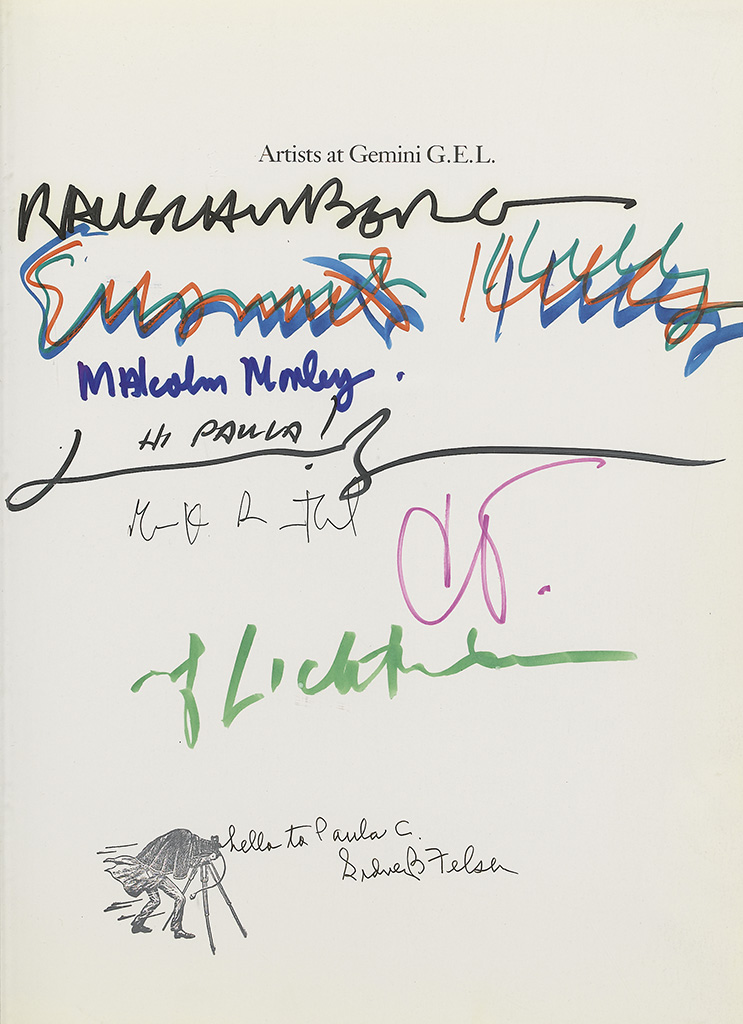 Artists at Gemini G.E.L.
RAUSCHENBERG
Ellsworth Kelly
Malcolm Morley.
HI PAULA!
rf Lichtenstein
hello to Paula C.
Sidney B Felsen